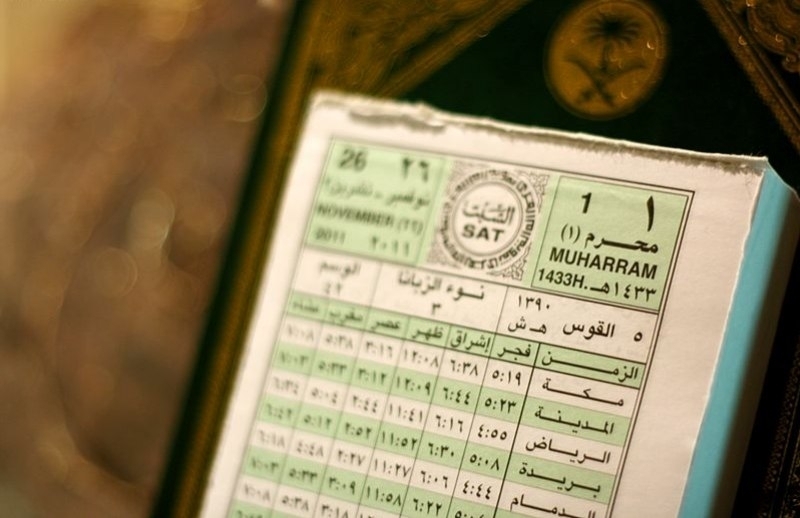 26 ٢٦
نوفمبر - تشرين٢
NOVEMBER (١١)
2011 ٢٠١١
السَّبْت
SAT
1 ١
محرم (١)
MUHARRAM
1433H. ١٤٣٣هـ
الوسم
٤٢
نوء الزبانا
٣
١٣٩٠
٥ القوس هـ ش
الزمن فجر إشراق ظهر عصر مغرب عشاء
مكة ٥:١٩ ٦:٣٨ ١٢:٠٨ ٣:١٦ ٥:٣٨ ٧:٠٨
المدينة ٥:٢٣ ٦:٤٤ ١٢:٠٩ ٣:١٢ ٥:٣٣ ٧:٠٣
الرياض ٤:٥٥ ٦:١٦ ١١:٤١ ٢:٤٤ ٥:٠٤ ٦:٣٤
بريدة ٥:٠٨ ٦:٣٠ ١١:٥٢ ٢:٥٢ ٥:١٢ ٦:٤٢
الدمام ٤:٤٤ ٦:٠٦ ١١:٢٧ ٢:٢٧ ٤:٤٨ ٦:١٨
٦:٢٢ ١١:٥٨ ٣:٠٩ ٥:٣٣ ٧:٠٣
٣:١٨ ٥:٣٨ ٧:٠٨